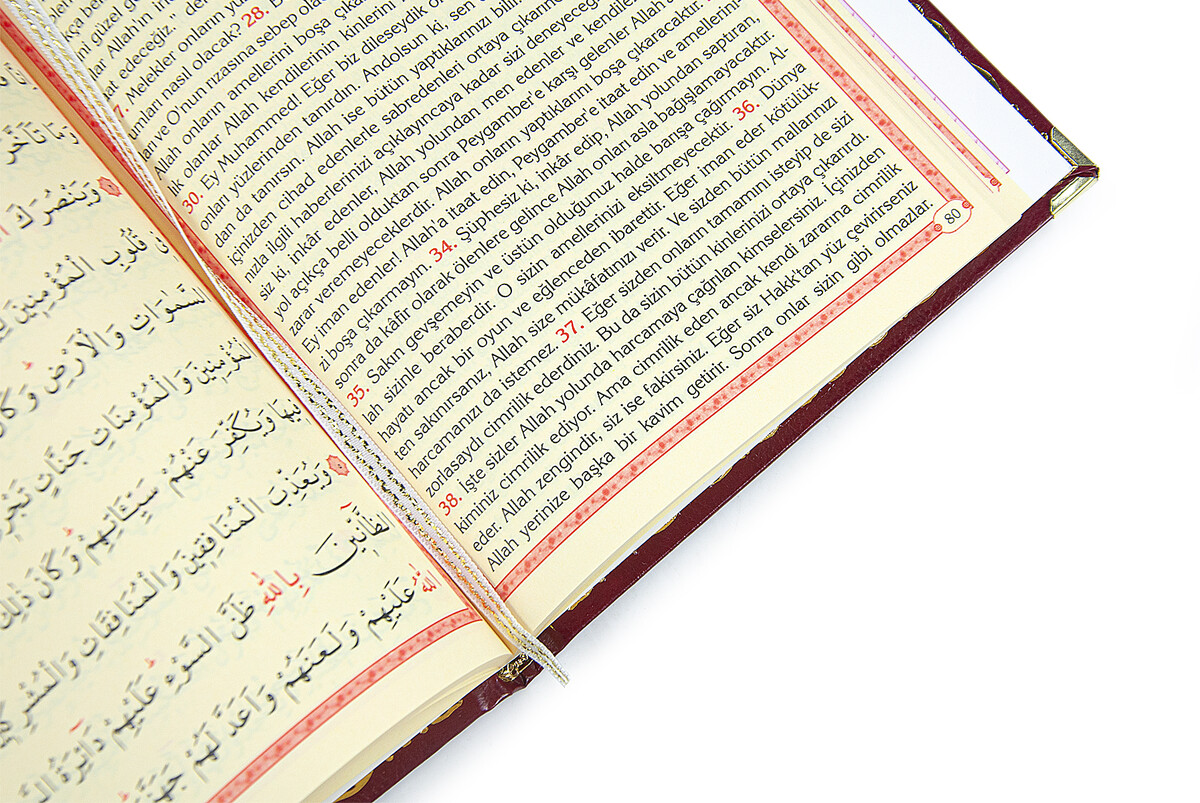 ni güzel
Allah'ın
edeceğiz.,,
Melekler onların
nasıl olacak? 28.
ve O'nun rızasına sebep
Allah onların amellerini boşa
lik olanlar Allah kendilerinin kinlerini
30. Ey Muhammed! Eğer biz dileseydik
onları yüzlerinden tanırdın. Andolsun ki, sen
dan da tanırsın. Allah ise bütün yaptıklarınızı
içinizden cihad edenlerle sabredenleri ortaya
nızla ilgili haberlerinizi açıklayıncaya kadar sizi
siz ki, inkâr edenler, Allah yolundan men edenler ve
yol açıkça belli olduktan sonra Peygamber'e karşı gelenler
zarar veremeyeceklerdir. Allah onların yaptıklarını boşa çıkaracaktır.
Ey iman edenler! Allah'a itaat edin, Peygamber'e itaat edin ve amellerini-
zi boşa çıkarmayın. 34. Şüphesiz ki, inkâr edip, Allah yolundan saptıran,
sonra da kâfir olarak ölenlere gelince Allah onları asla bağışlamayacaktır.
35. Sakın gevşemeyin ve üstün olduğunuz halde barışa çağırmayın. Al-
lah sizinle beraberdir. O sizin amellerinizi eksiltmeyecektir. 36. Dünya
hayatı ancak bir oyun ve eğlenceden ibarettir. Eğer iman eder kötülük-
ten sakınırsanız, Allah size mükâfatınızı verir. Ve sizden bütün mallarınızı
harcamanızı da istemez. 37. Eğer sizden onların tamamını isteyip de sizi
zorlasaydı cimrilik ederdiniz. Bu da sizin bütün kinlerinizi ortaya çıkarırdı.
38. İşte sizler Allah yolunda harcamaya çağrılan kimselersiniz. İçinizden
kiminiz cimrilik ediyor. Ama cimrilik eden ancak kendi zararına cimrilik
eder. Allah zengindir, siz ise fakirsiniz. Eğer siz Hakk'tan yüz çevirirseniz
Allah yerinize başka bir kavim getirir. Sonra onlar sizin gibi olmazlar.
80
تَاَخَّرَ
وَيَنْصُرَكَ
قُلُوبِ الْمُؤْمِنِينَ
السَّمٰوَاتِ وَالْاَرْضِ وَكَانَ
الْمُؤْمِنِينَ وَالْمُؤْمِنَاتِ جَنَّاتٍ
فِيهَا وَيُكَفِّرَ عَنْهُمْ سَيِّـَٔاتِهِمْ وَكَانَ ذٰلِكَ
وَيُعَذِّبَ الْمُنَافِقِينَ وَالْمُنَافِقَاتِ
الظَّٓانِّينَ بِاللّٰهِ ظَنَّ السَّوْءِ عَلَيْهِمْ دَٓائِرَةُ
اللّٰهُ عَلَيْهِمْ وَلَعَنَهُمْ وَاَعَدَّ لَهُمْ